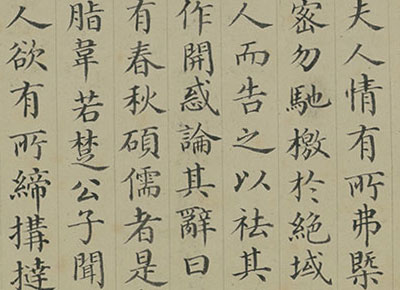 夫人情有所弗槩
密勿馳檄於絕域
人而告之以祛其
作開惑論其辭曰
有春秋碩儒者是
脂韋若楚公子聞
人欲有所締搆撻